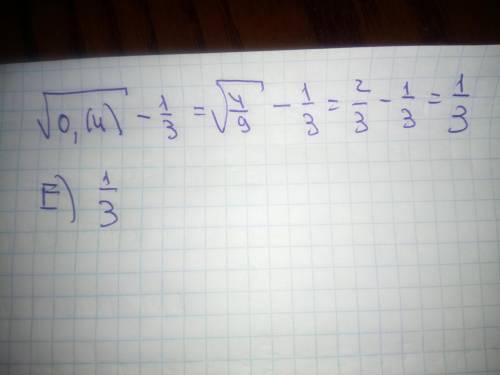 √0,(4) - 1/3 = √4/9 - 1/3 = 2/3 - 1/3 = 1/3
Г) 1/3